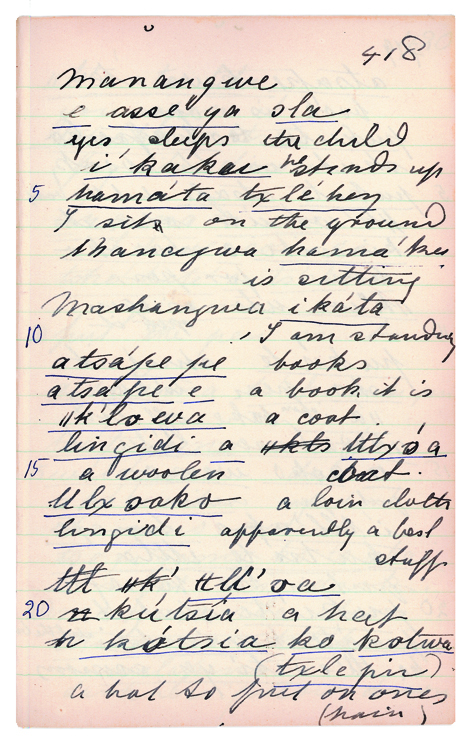 418
manangwe
e asse ya sla
yes sleeps the child
i' kakae he stands up
5 hamáta txléhey
I sit on the ground
Mhanagwa hamá
is sitting
Mashangwa ikáta
10 I am standing
atsápe pe books
atsápe e a book it is
a coat
lingidi a
15 a woolen coat.
a loin cloth
lingidi apparently a best
stuff
20 kútsía a hat
kótsía ko kotwa
(txlepir)
a hat to put on ones
(hair)